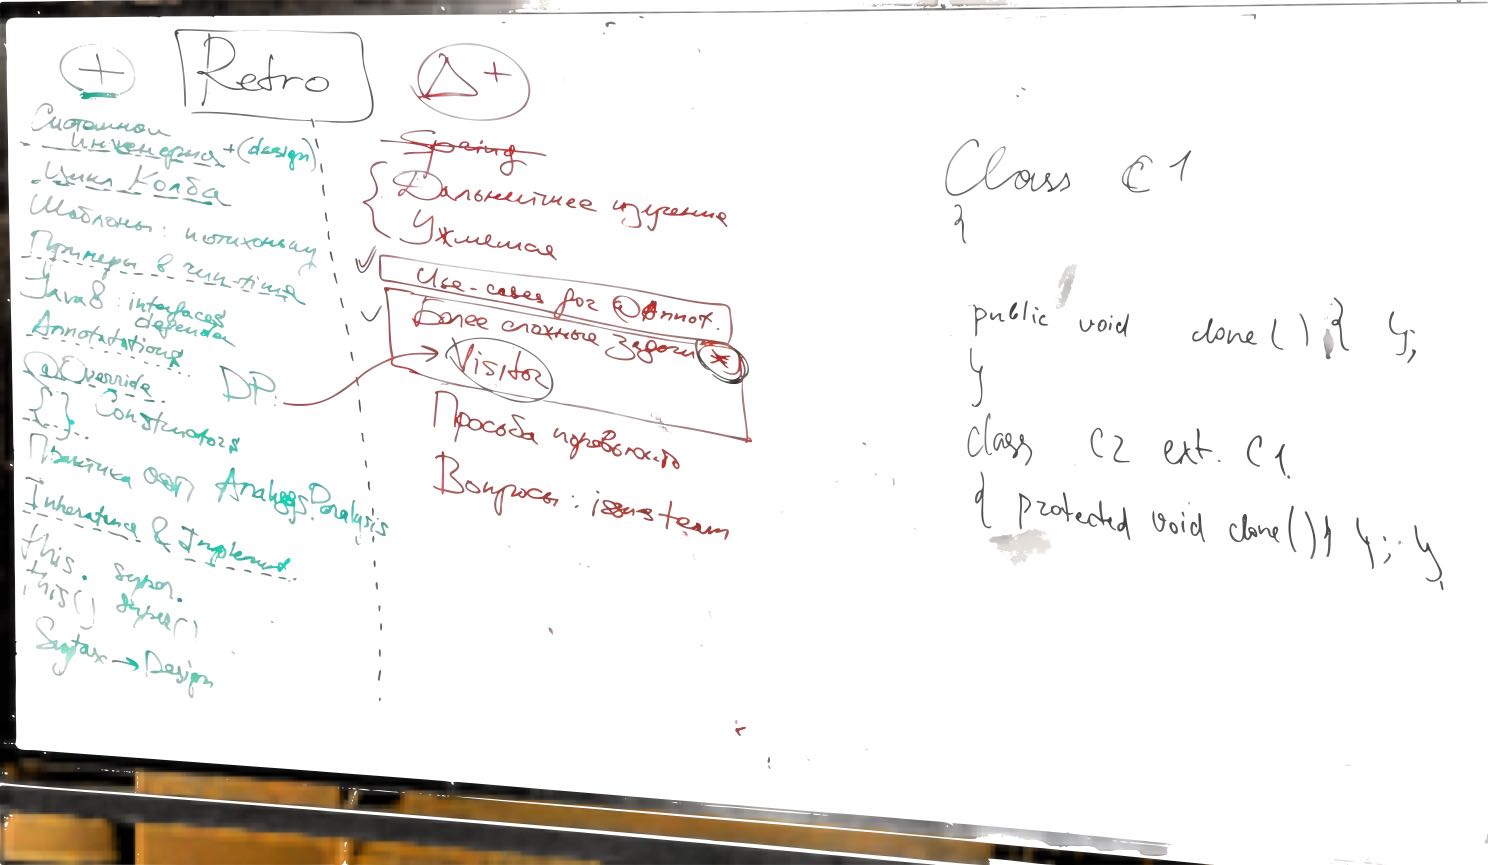 +
Retro
Δ+
Системной
Инженерия + (design)
Цикл Колба
Шаблоны: потихоньку
Примеры в run-time
Java8: interfaces
depender
Annotations
@Override
DP:
{ } Constructors
Практика ООП Analysis Paralysis
Inheratince & Implement
this. super.
this() super()
Syntax → Design
Spring
Дальнейшее изучение
Ужметая
Use-cases for @Annot.
Более сложные задачи *
Visitor
Просьба
Вопросы: issus team
Class C1
{
public void clone() { };
}
class C2 ext. C1
{ protected void clone() { }; }